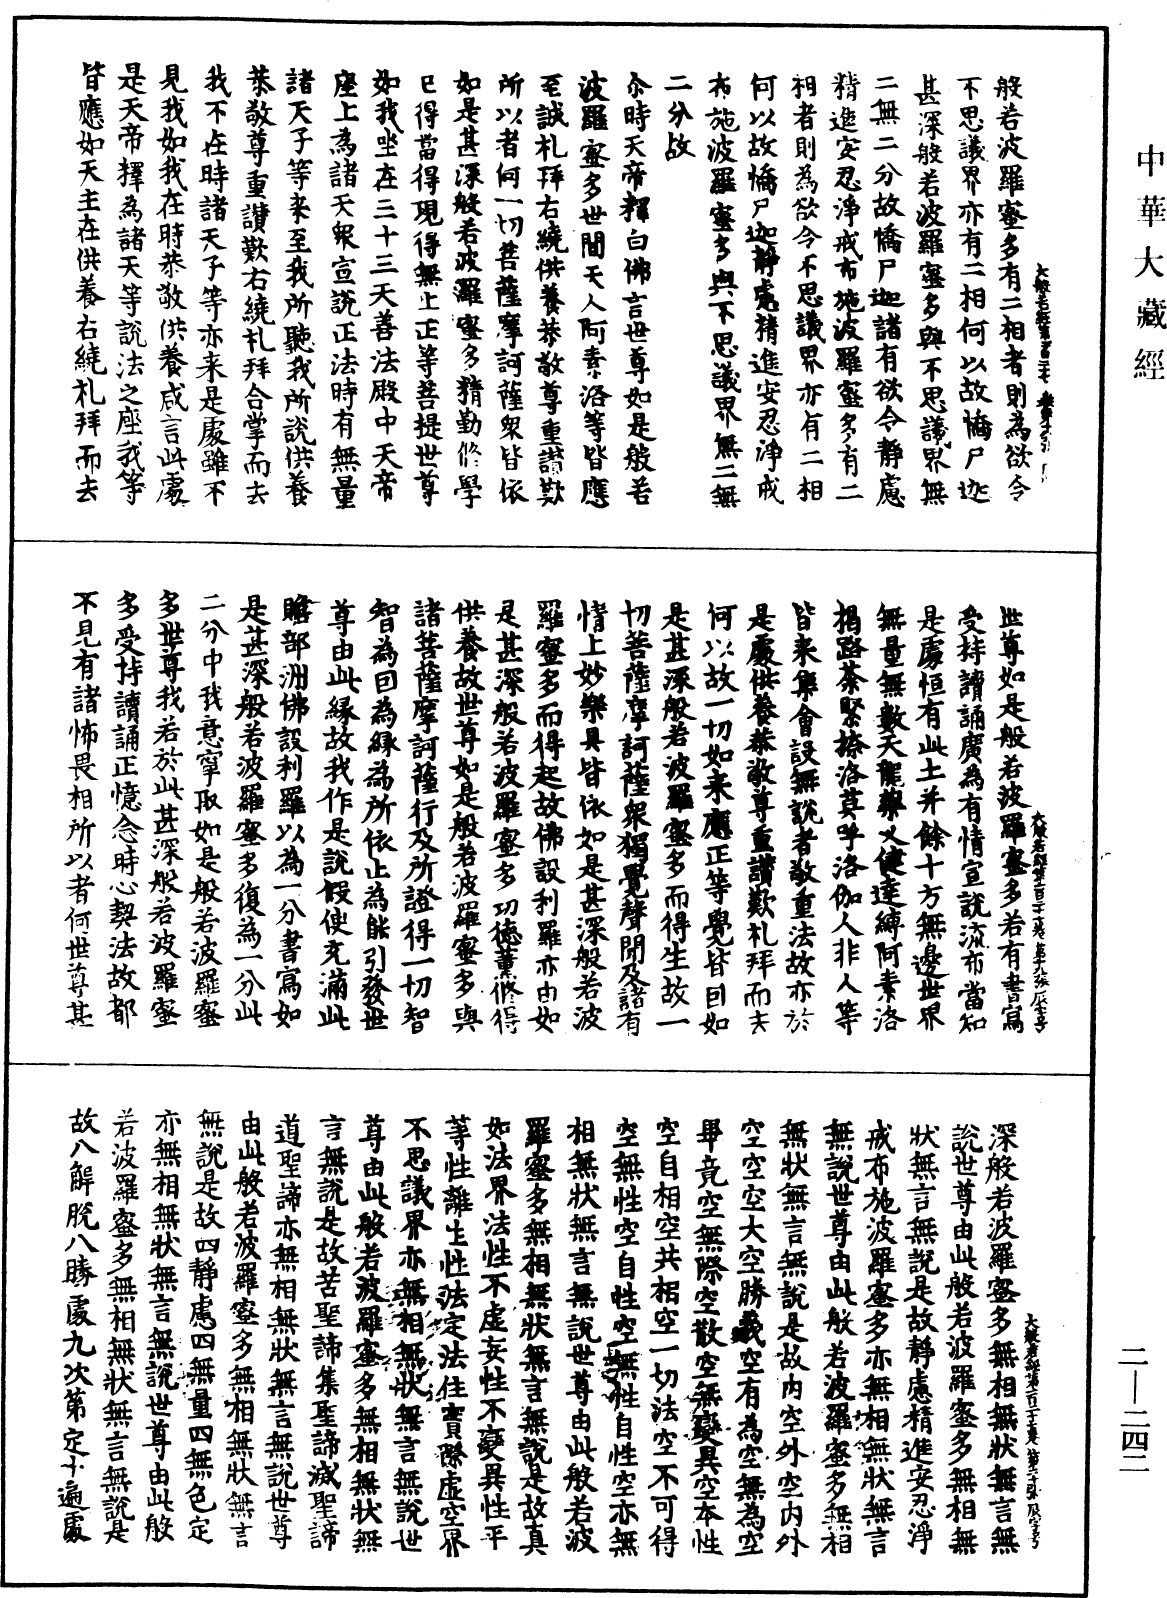 中華大藏經
般若波羅蜜多有二相者則為欲令
不思議界亦有二相何以故憍尸迦
甚深般若波羅蜜多與不思議界無
二無二分故憍尸迦諸有欲令靜慮
精進安忍淨戒布施波羅蜜多有二
相者則為欲令不思議界亦有二相
何以故憍尸迦靜慮精進安忍淨戒
布施波羅蜜多與不思議界無二無
二分故
尒時天帝釋白佛言世尊如是般若
波羅蜜多世間天人阿素洛等皆應
至誠礼拜右繞供養恭敬尊重讃歎
所以者何一切菩薩摩訶薩衆皆依
如是甚深般若波羅蜜多精勤修學
已得當得現得無上正等菩提世尊
如我坐在三十三天善法殿中天帝
座上為諸天衆宣說正法時有無量
諸天子等来至我所聽我所說供養
恭敬尊重讃歎右繞礼拜合掌而去
我不在時諸天子等亦来是處雖不
見我如我在時恭敬供養咸言此處
是天帝釋為諸天等說法之座我等
皆應如天主在供養右繞礼拜而去
世尊如是般若波羅蜜多若有書寫
受持讀誦廣為有情宣說流布當知
是處恒有此土并餘十方無邊世界
無量無數天龍藥叉健達縛阿素洛
揭路荼緊捺洛莫呼洛伽人非人等
皆来集會設無說者敬重法故亦於
是處供養恭敬尊重讃歎礼拜而去
何以故一切如来應正等覺皆因如
是甚深般若波羅蜜多而得生故一
切菩薩摩訶薩衆獨覺聲聞及諸有
情上妙樂具皆依如是甚深般若波
羅蜜多而得起故佛設利羅亦由如
是甚深般若波羅蜜多功德薰修得
供養故世尊如是般若波羅蜜多與
諸菩薩摩訶薩行及所證得一切智
智為因為緣為所依止為能引發世
尊由此緣故我作是說假使充滿此
贍部洲佛設利羅以為一分書寫如
是甚深般若波羅蜜多復為一分此
二分中我意寧取如是般若波羅蜜
多世尊我若於此甚深般若波羅蜜
多受持讀誦正憶念時心契法故都
不見有諸怖畏相所以者何世尊甚
深般若波羅蜜多無相無狀無言無
說世尊由此般若波羅蜜多無相無
狀無言無說是故靜慮精進安忍淨
戒布施波羅蜜多亦無相無狀無言
無說世尊由此般若波羅蜜多無相
無狀無言無說是故內空外空內外
空空空大空勝義空有為空無為空
畢竟空無際空散空無變異空本性
空自相空共相空一切法空不可得
空無性空自性空無性自性空亦無
相無狀無言無說世尊由此般若波
羅蜜多無相無狀無言無說是故真
如法界法性不虛妄性不變異性平
等性離生性法定法住實際虛空界
不思議界亦無相無狀無言無說世
尊由此般若波羅蜜多無相無狀無
言無說是故苦聖諦集聖諦滅聖諦
道聖諦亦無相無狀無言無說世尊
由此般若波羅蜜多無相無狀無言
無說是故四靜慮四無量四無色定
亦無相無狀無言無說世尊由此般
若波羅蜜多無相無狀無言無說是
故八解脫八勝處九次第定十遍處
二—二四二